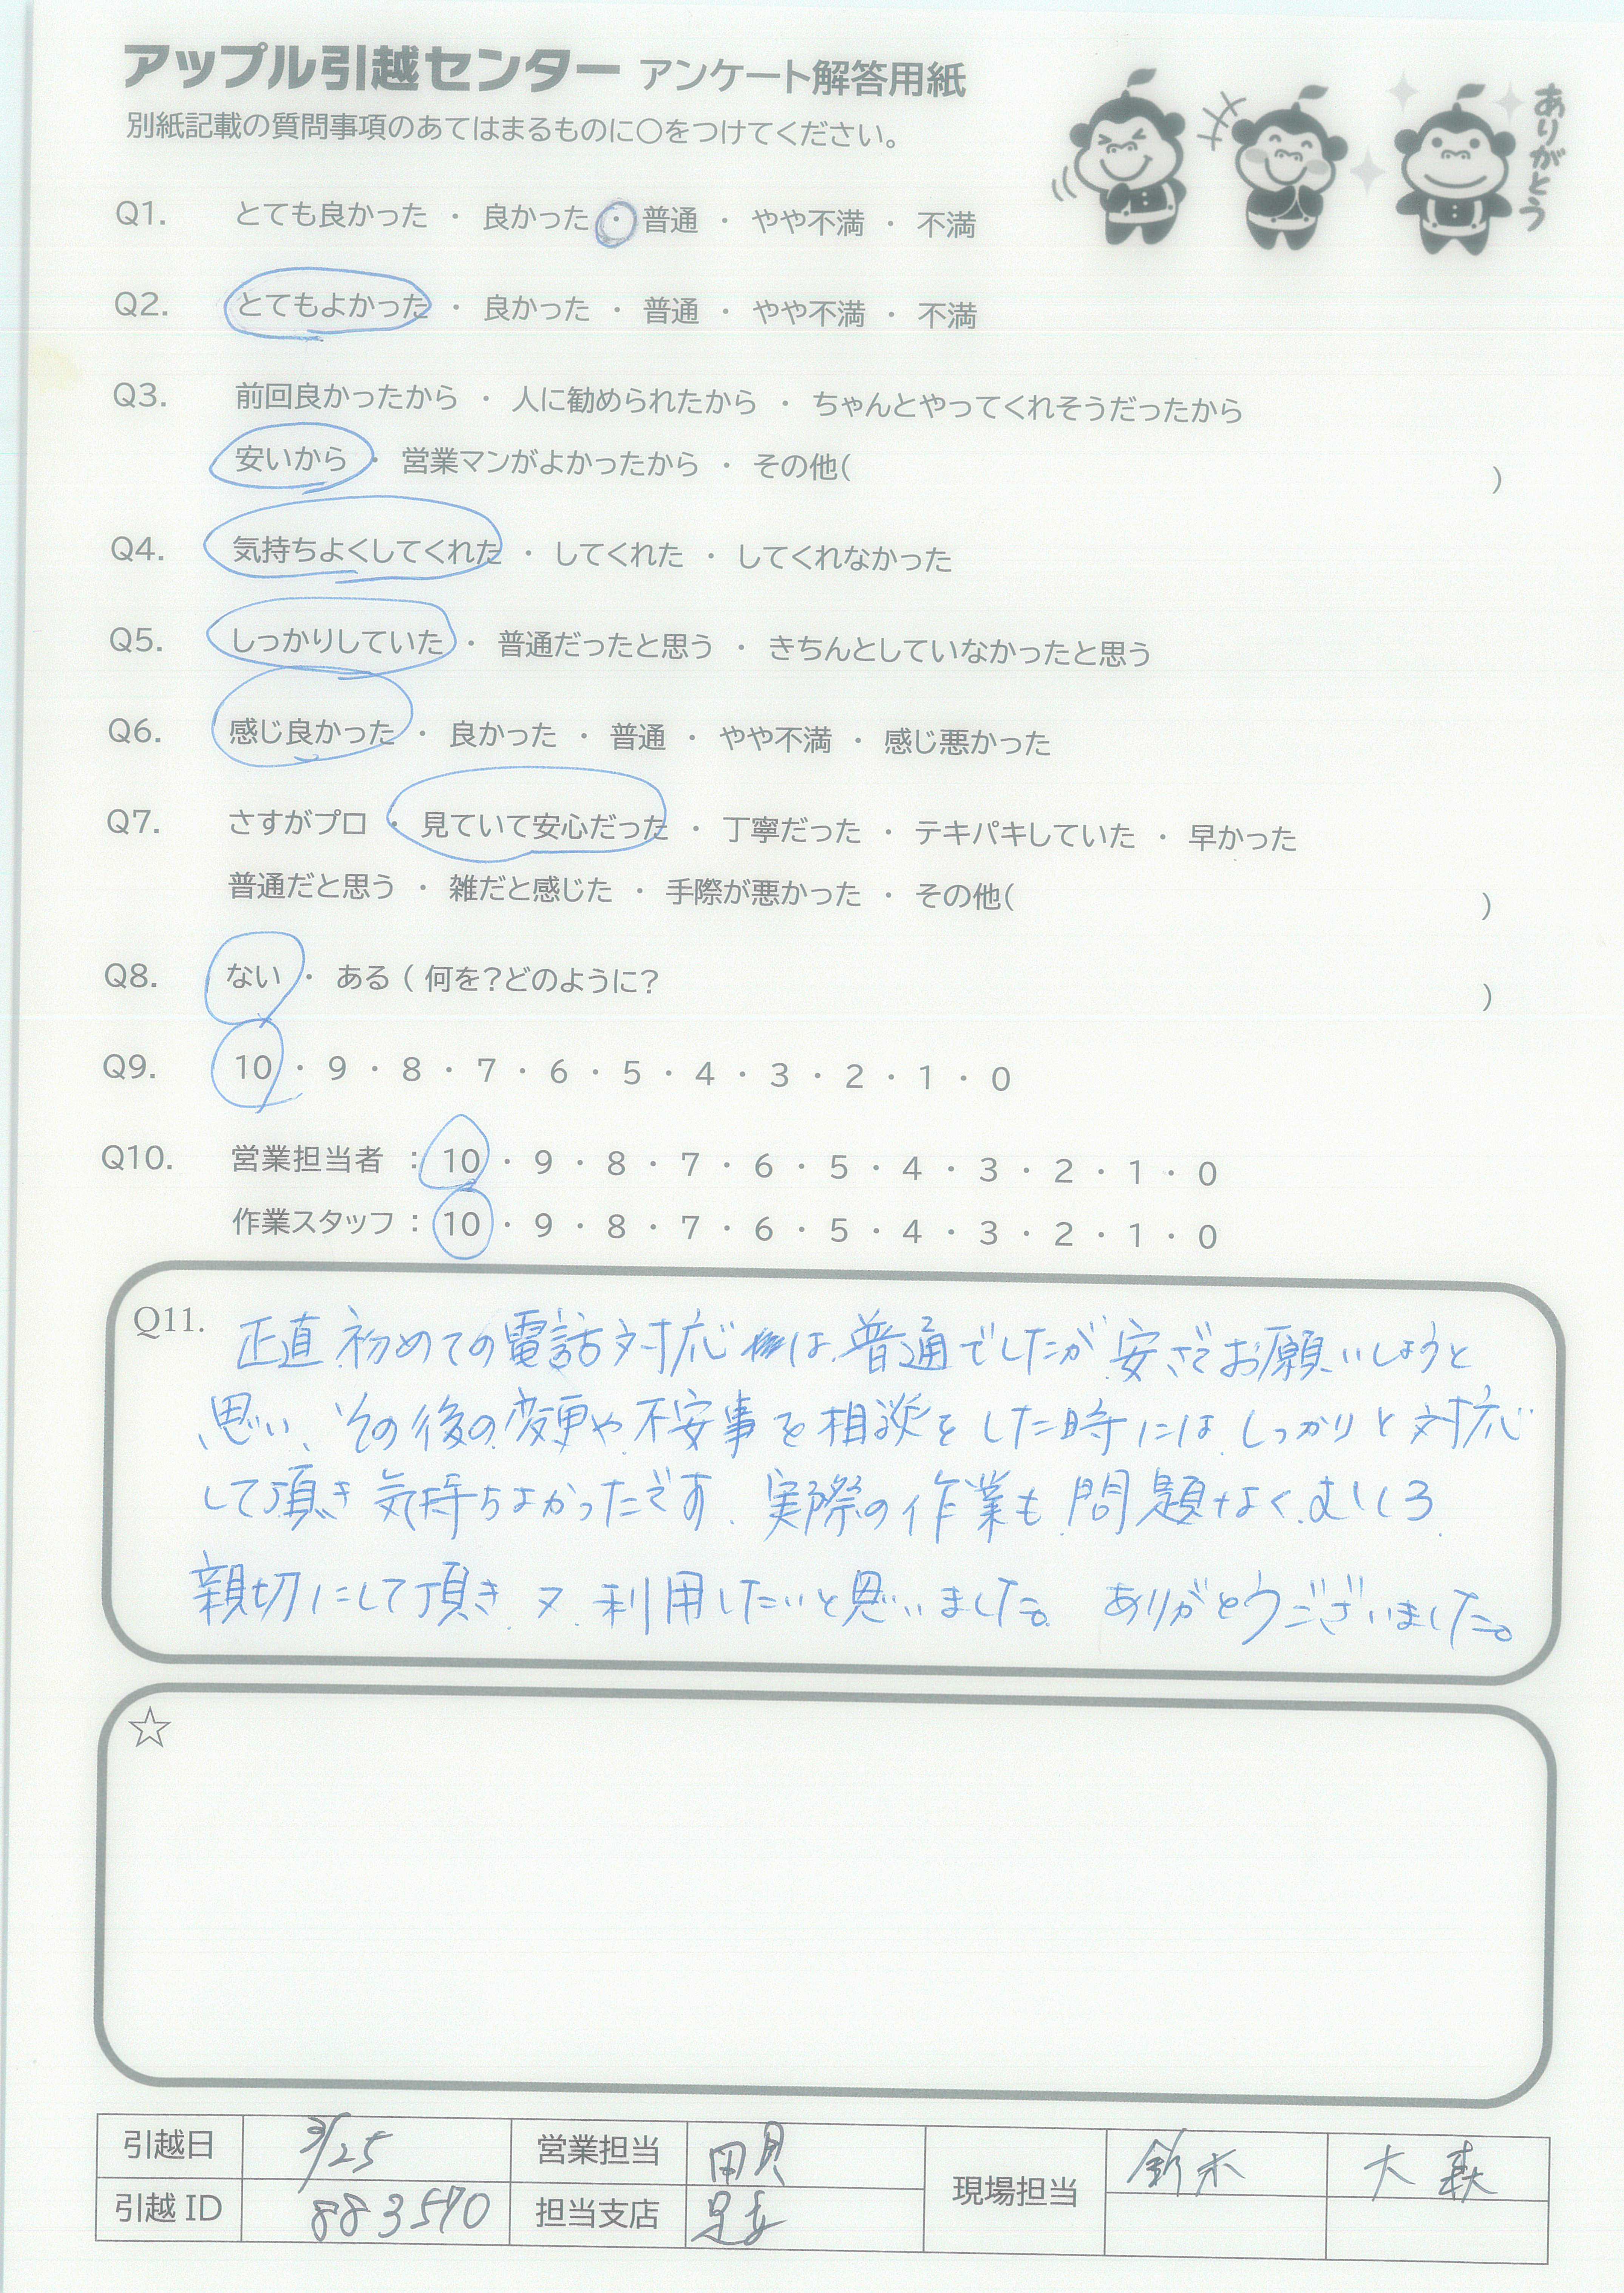 アップル引越センター アンケート解答用紙
別紙記載の質問事項のあてはまるものに○をつけてください。
ありがとう
Q1. とても良かった ・ 良かった ・ 普通 ・ やや不満 ・ 不満
Q2. とてもよかった ・ 良かった ・ 普通 ・ やや不満 ・ 不満
Q3. 前回良かったから ・ 人に勧められたから ・ ちゃんとやってくれそうだったから
安いから ・ 営業マンがよかったから ・ その他( )
Q4. 気持ちよくしてくれた ・ してくれた ・ してくれなかった
Q5. しっかりしていた ・ 普通だったと思う ・ きちんとしていなかったと思う
Q6. 感じ良かった ・ 良かった ・ 普通 ・ やや不満 ・ 感じ悪かった
Q7. さすがプロ ・ 見ていて安心だった ・ 丁寧だった ・ テキパキしていた ・ 早かった
普通だと思う ・ 雑だと感じた ・ 手際が悪かった ・ その他( )
Q8. ない ・ ある ( 何を?どのように? )
Q9. 10 ・ 9 ・ 8 ・ 7 ・ 6 ・ 5 ・ 4 ・ 3 ・ 2 ・ 1 ・ 0
Q10. 営業担当者 : 10 ・ 9 ・ 8 ・ 7 ・ 6 ・ 5 ・ 4 ・ 3 ・ 2 ・ 1 ・ 0
作業スタッフ : 10 ・ 9 ・ 8 ・ 7 ・ 6 ・ 5 ・ 4 ・ 3 ・ 2 ・ 1 ・ 0
Q11. 正直 初めての電話対応は、普通でしたが 安さでお願いしようと
思い、その後の変更や不安事を相談をした時には、しっかりと対応
して頂き 気持ちよかったです。実際の作業も問題なく、むしろ
親切にして頂き 又、利用したいと思いました。ありがとうございました。
☆
引越日 3/25 営業担当 現場担当 鈴木 大森
引越 ID 883570 担当支店 足立